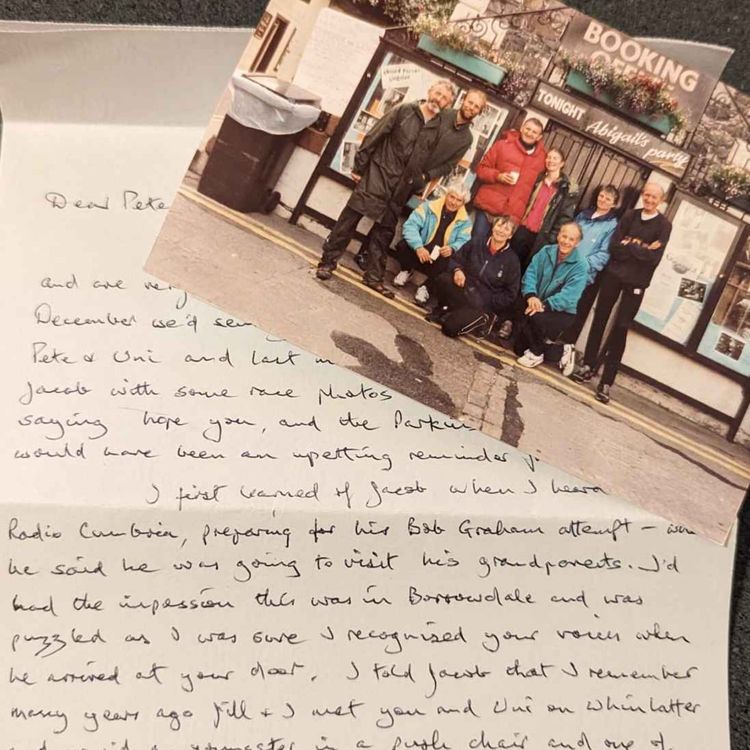 BOOKING
OFFICE
TONIGHT Abigail's party
Dear Pete
and are very
December we'd
Pete & Uni and last
Jacob with some race photos
saying hope you, and the
would have been an upsetting reminder
I first learned of Jacob when I heard
Radio Cumbria, preparing for his Bob Graham attempt –
he said he was going to visit his grandparents. I'd
had the impession this was in Borrowdale and was
puzzled as I was sure I recognized your voices when
he arrived at your door. I told Jacob that I remember
many years ago Jill & I met you and Uni on Whinlatter
in a push chair and one of